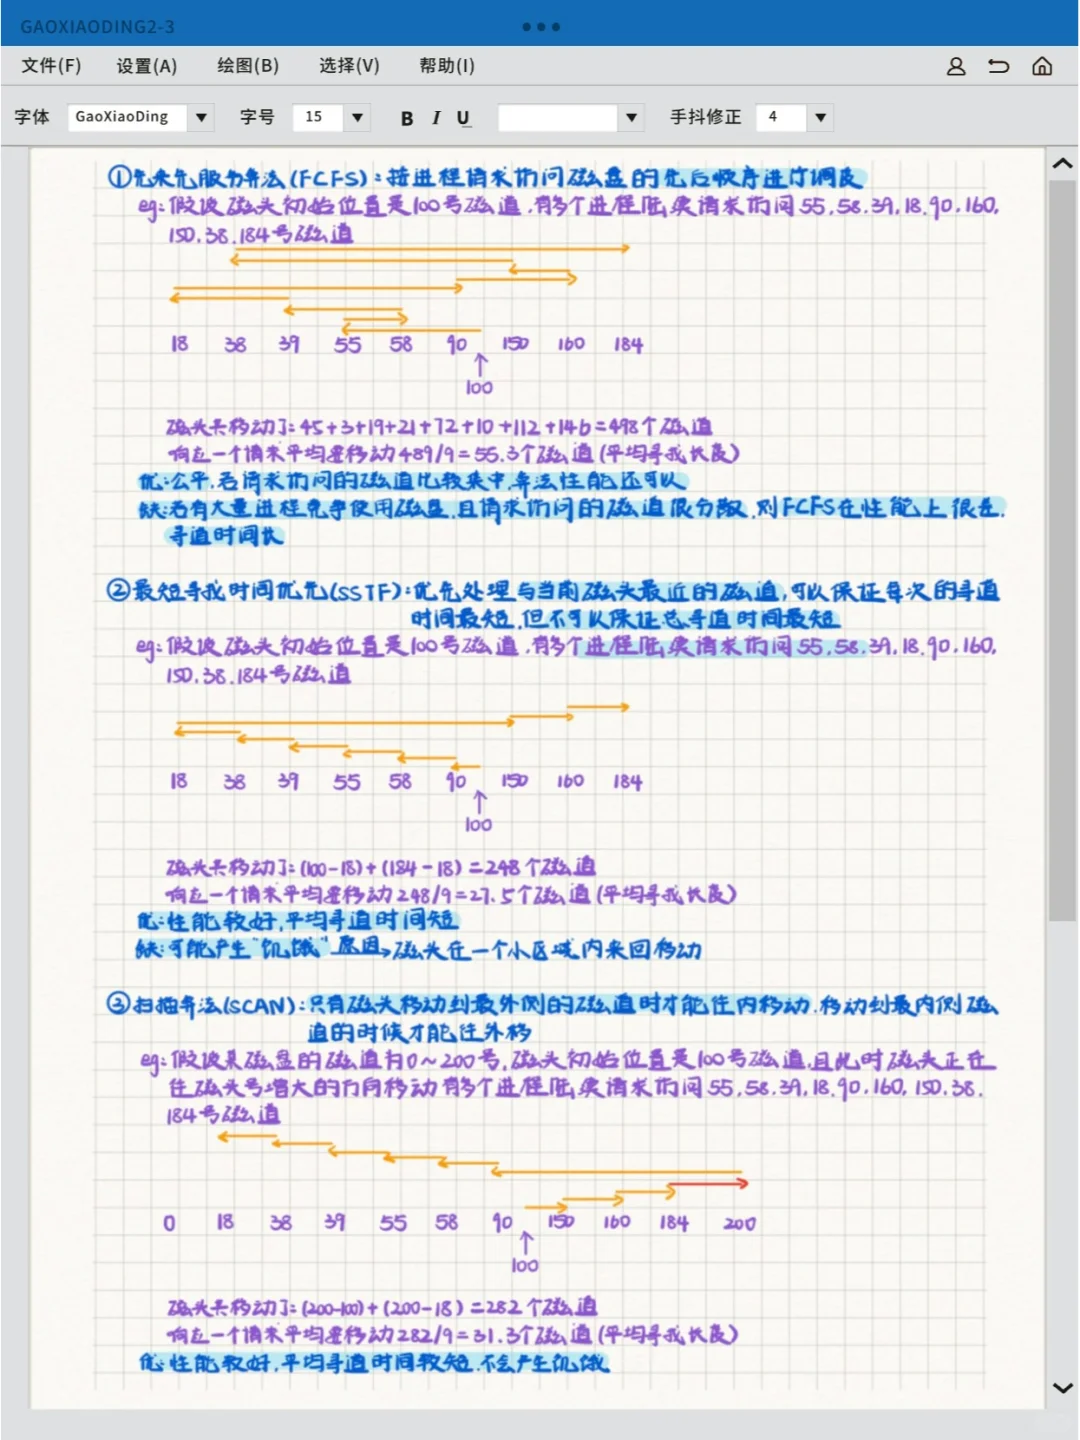 GAOXIAODING2-3
文件(F) 设置(A) 绘图(B) 选择(V) 帮助(I)
字体 GaoXiaoDing 字号 15 B I U 手抖修正 4
①先来先服务算法(FCFS):按进程请求访问磁盘的先后顺序进行调度
eg:假设磁头初始位置是100号磁道,有多个进程陆续请求访问55,58,39,18,90,160,
150,38,184号磁道
18 38 39 55 58 90 150 160 184
100
磁头共移动了:45+3+19+21+72+10+112+146=498个磁道
响应一个请求平均要移动489/9=55.3个磁道(平均寻找长度)
优:公平,若请求访问的磁道比较集中,算法性能还可以
缺:若有大量进程竞争使用磁盘,且请求访问的磁道很分散,则FCFS在性能上很差,
寻道时间长
②最短寻找时间优先(SSTF):优先处理与当前磁头最近的磁道,可以保证每次的寻道
时间最短,但不可以保证总寻道时间最短
eg:假设磁头初始位置是100号磁道,有多个进程陆续请求访问55,58,39,18,90,160,
150,38,184号磁道
18 38 39 55 58 90 150 160 184
100
磁头共移动了:(100-18)+(184-18)=248个磁道
响应一个请求平均要移动248/9=27.5个磁道(平均寻找长度)
优:性能较好,平均寻道时间短
缺:可能产生"饥饿" 原因→磁头在一个小区域内来回移动
③扫描算法(SCAN):只有磁头移动到最外侧的磁道时才能往内移动,移动到最内侧磁
道的时候才能往外移
eg:假设某磁盘的磁道为0~200号,磁头初始位置是100号磁道,且此时磁头正在
往磁头号增大的方向移动有多个进程陆续请求访问55,58,39,18,90,160,150,38,
184号磁道
0 18 38 39 55 58 90 150 160 184 200
100
磁头共移动了:(200-100)+(200-18)=282个磁道
响应一个请求平均要移动282/9=31.3个磁道(平均寻找长度)
优:性能较好,平均寻道时间较短,不会产生饥饿